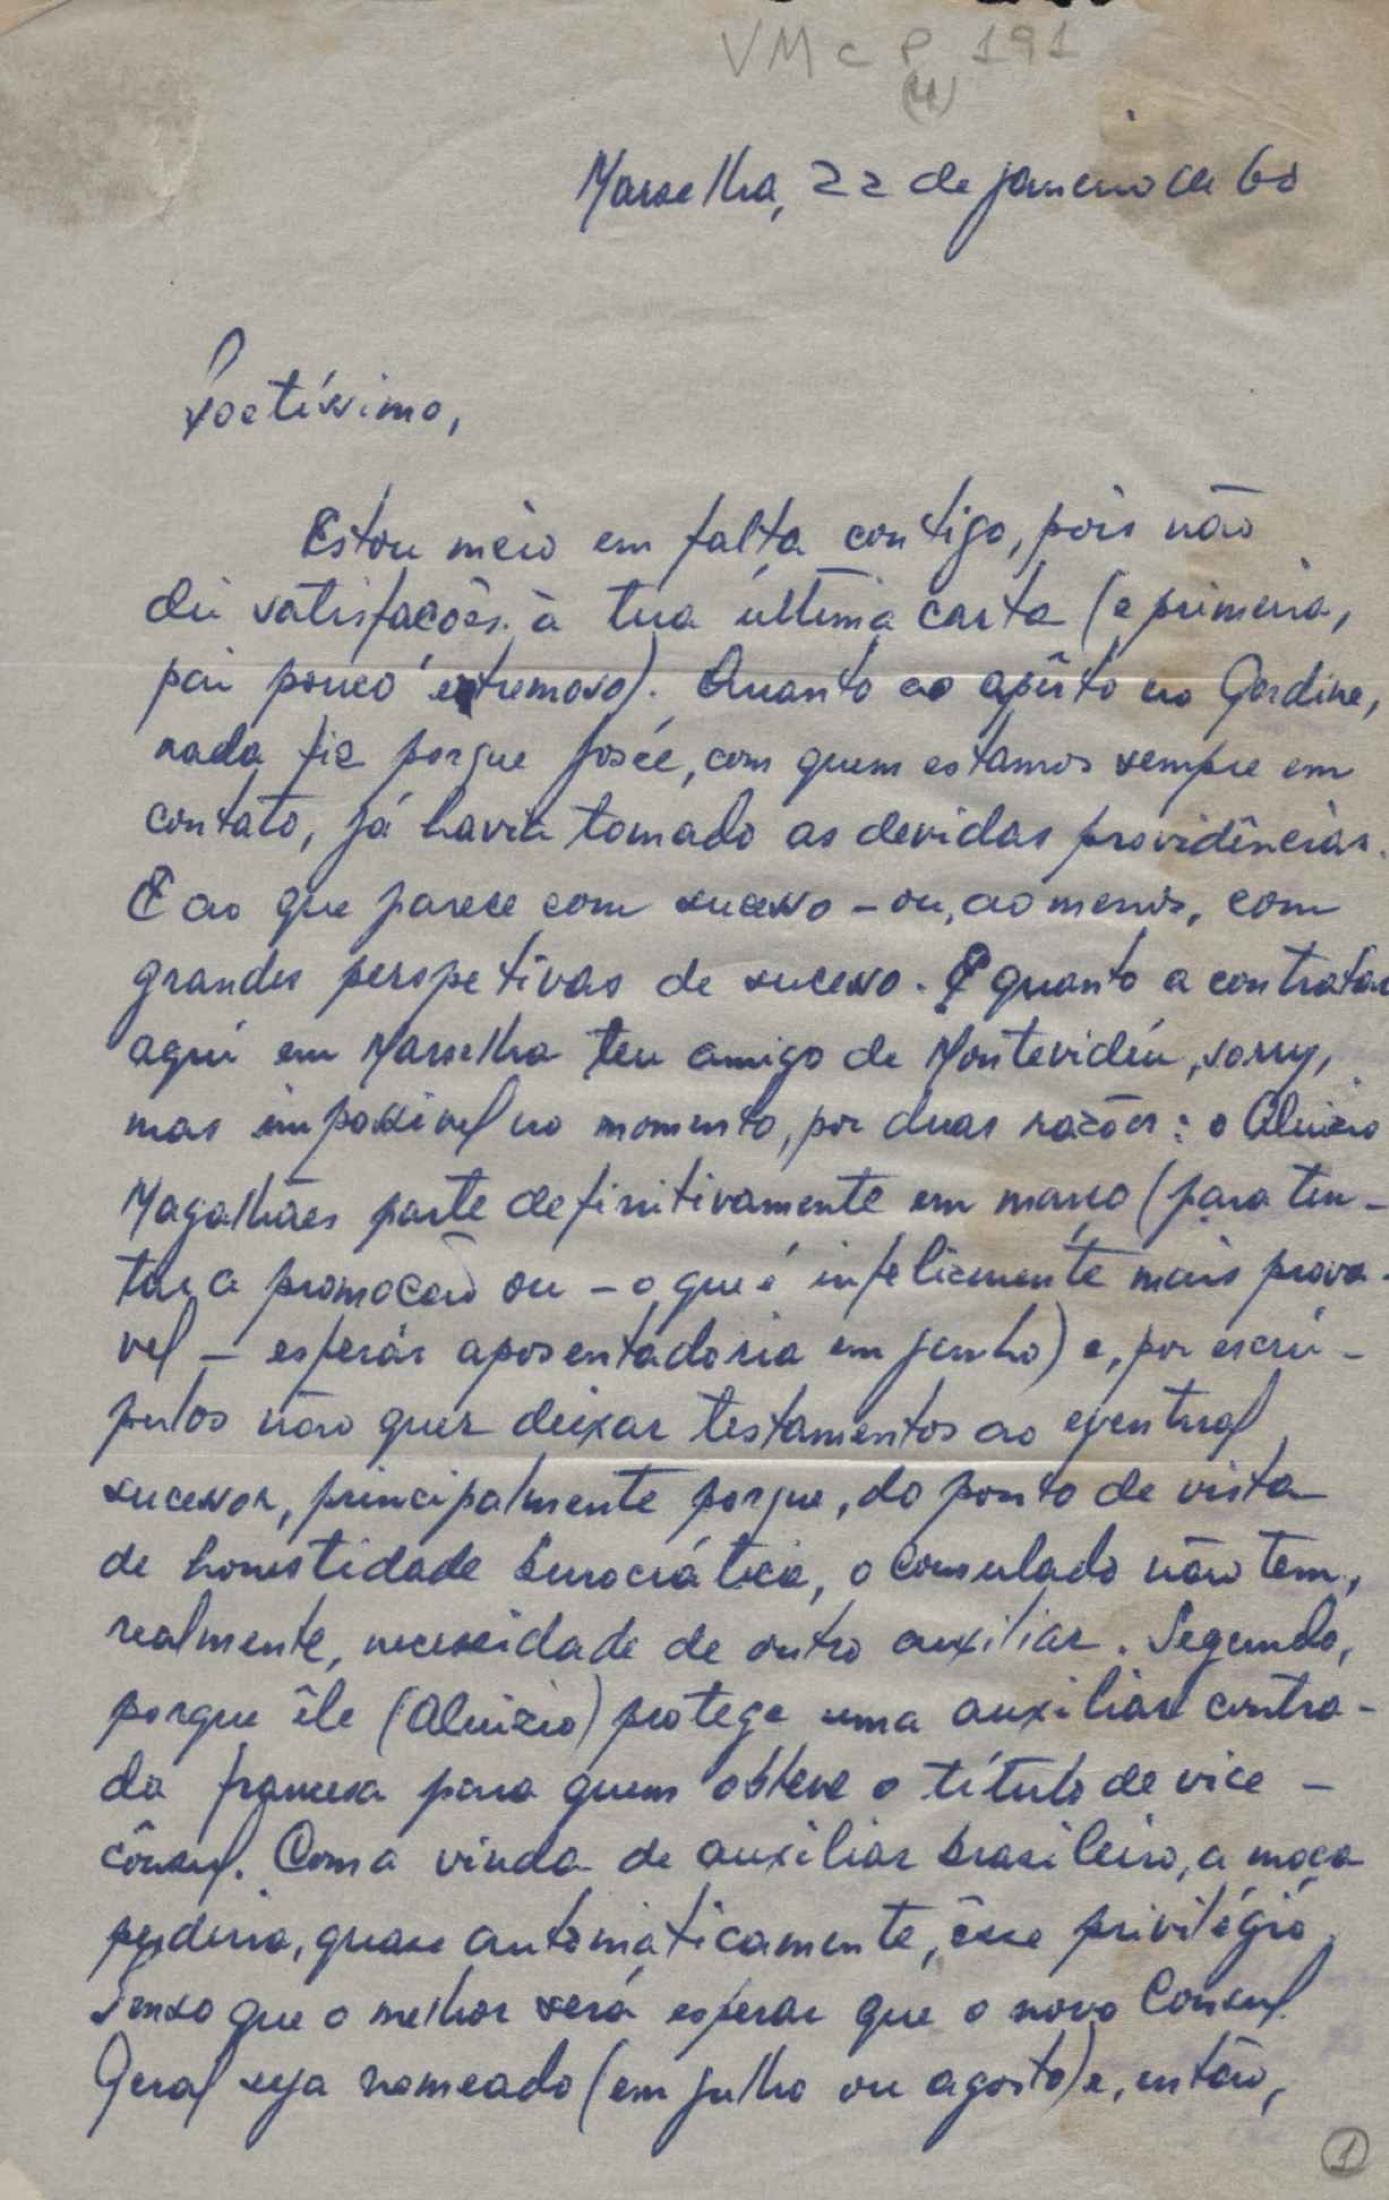 VMcP 191
(4)
Marselha, 22 de janeiro de 60
Poetíssimo,
Estou meio em falta contigo, pois não
dei satisfações à tua última carta (e primeira,
pai pouco extremoso). Quanto ao apêrto no Gardine,
nada fiz porque Josée, com quem estamos sempre em
contato, já havia tomado as devidas providências.
E ao que parece com sucesso - ou, ao menos, com
grandes perspetivas de sucesso. E quanto a contratar
aqui em Marselha teu amigo de Montevidéu, sorry,
mas impossível no momento, por duas razões: o Aluizio
Magalhães parte definitivamente em março (para ten-
tar a promoção ou - o que é infelizmente mais prova-
vel - esperar aposentadoria em junho) e, por escrú-
pulos não quer deixar testamentos ao eventual
sucessor, principalmente porque, do ponto de vista
de honestidade burocrática, o Consulado não tem,
realmente, necessidade de outro auxiliar. Segundo,
porque êle (Aluizio) protege uma auxiliar contra-
da francesa para quem obteve o título de vice-
cônsul. Com a vinda de auxiliar brasileiro, a moça
perderia, quase automaticamente, êsse privilégio.
Penso que o melhor será esperar que o novo Consul
Geral seja nomeado (em julho ou agosto) e, então,
1